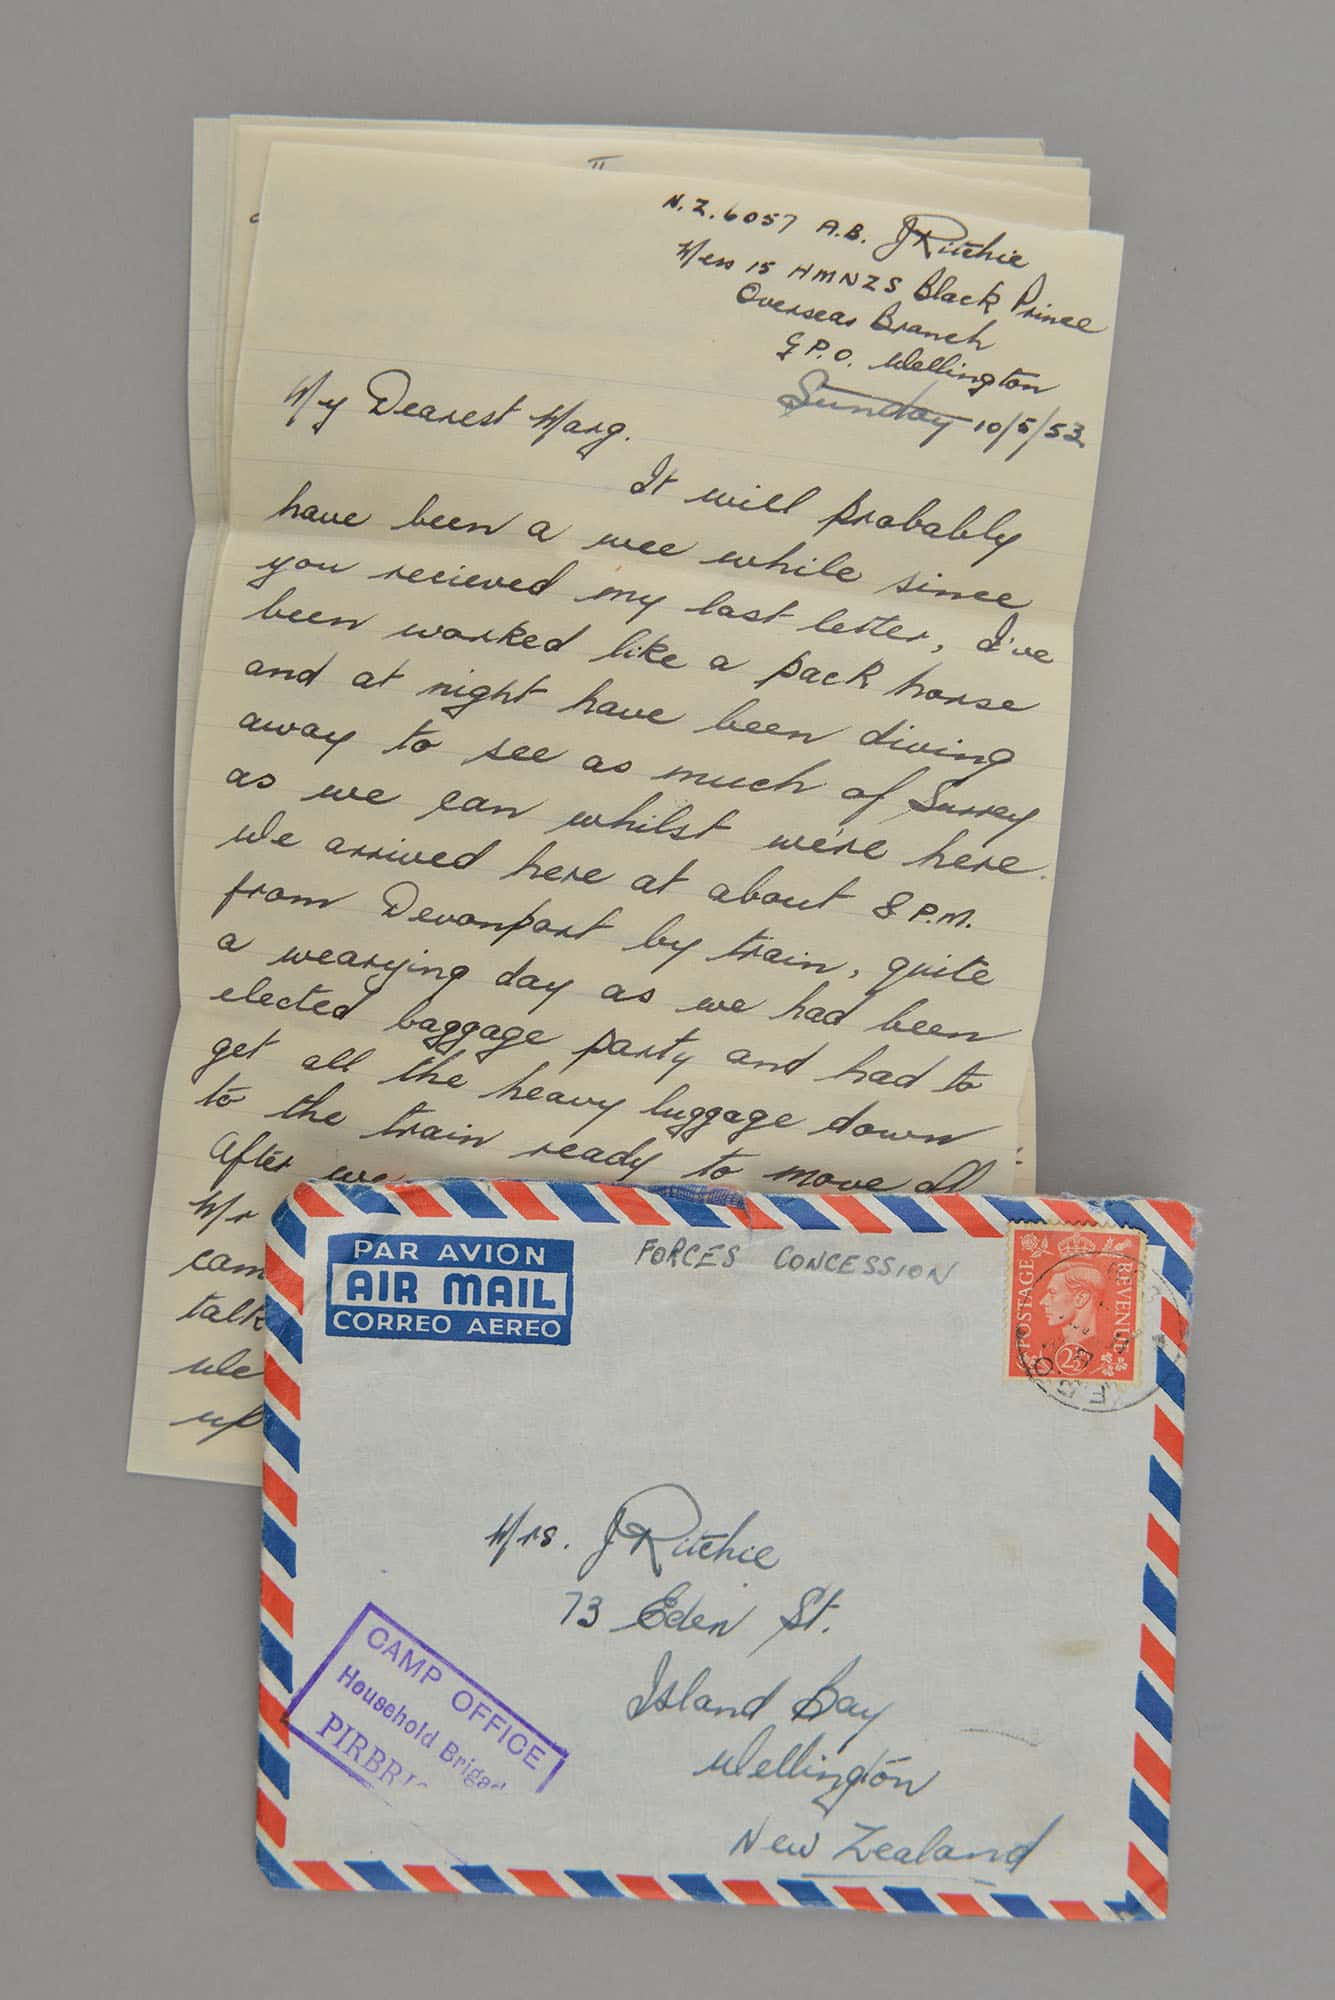 II
N.Z. 6057 A.B. J Ritchie
Mess 15 HMNZS Black Prince
Overseas Branch
G.P.O. Wellington
Sunday 10/5/53
My Dearest Marg.
It will probably
have been a wee while since
you recieved my last letter, I've
been worked like a pack horse
and at night have been diving
away to see as much of Surrey
as we can whilst we're here.
We arrived here at about 8 P.M.
from Devonport by train, quite
a wearying day as we had been
elected baggage party and had to
get all the heavy luggage down
to the train ready to move off
After we
Mr
cam
talk
We
up
PAR AVION
AIR MAIL
CORREO AEREO
FORCES CONCESSION
POSTAGE REVENUE
2½D
Mrs. J Ritchie
73 Eden St.
Island Bay
Wellington
New Zealand
CAMP OFFICE
Household Brigad
PIRBRI